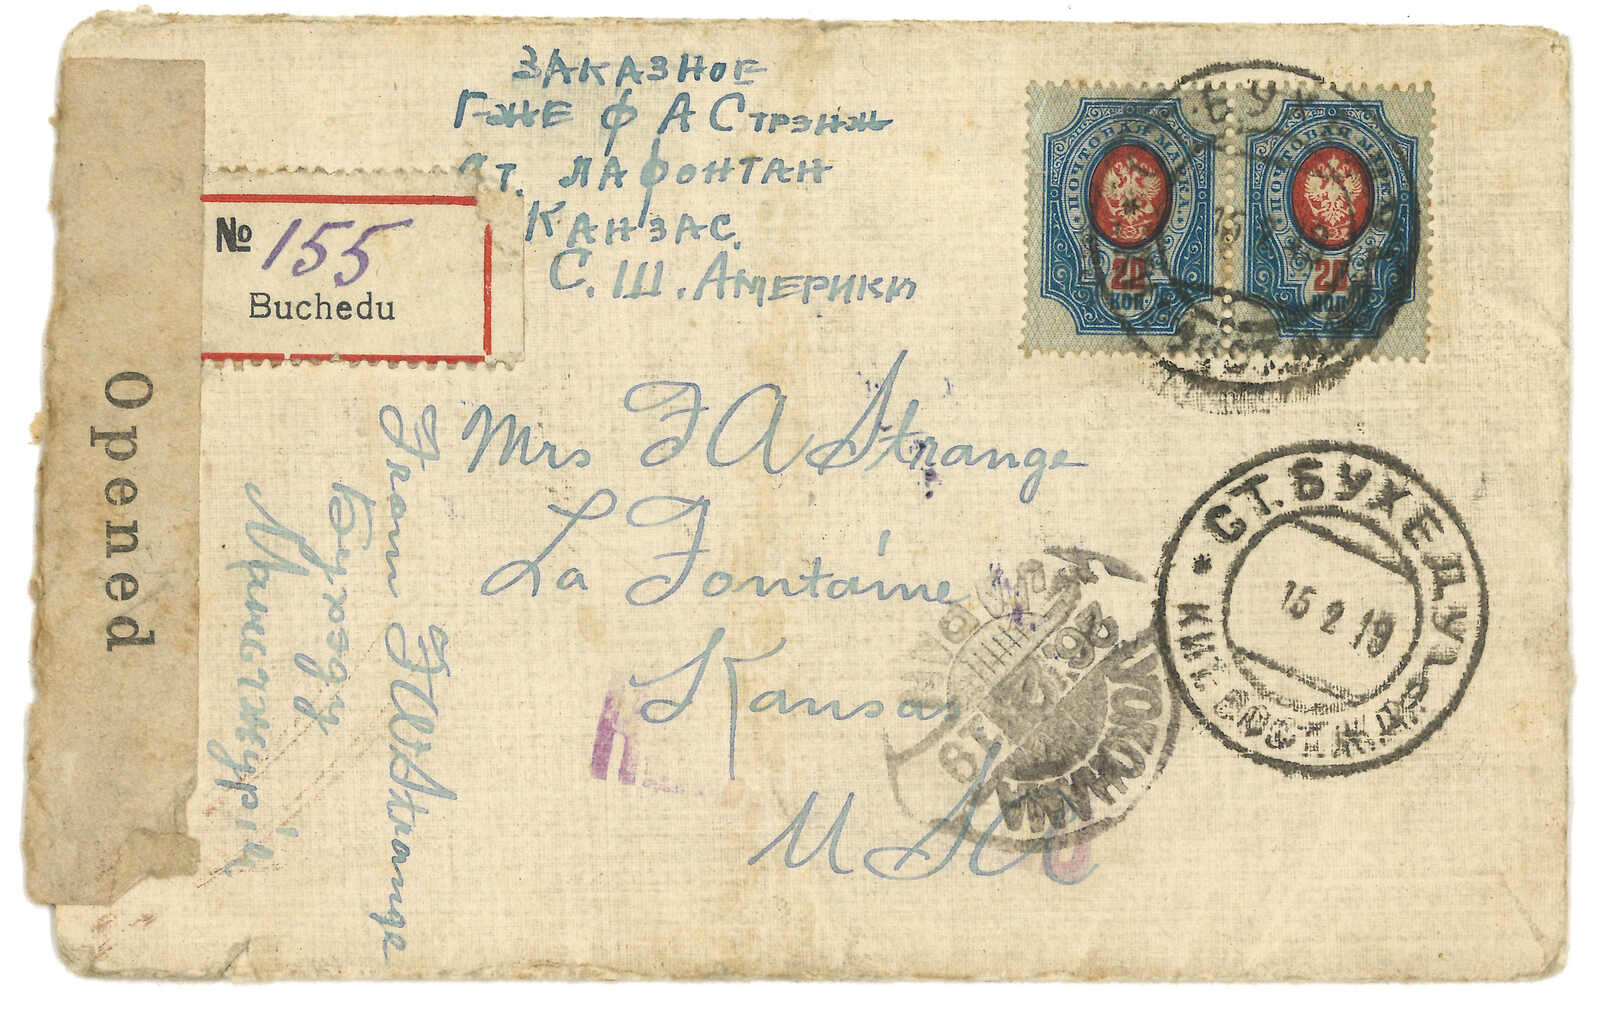 ЗАКАЗНОЕ
Г-ЖЕ Ф А СТРЭНЖ
СТ. ЛАФОНТАН
КАНЗАС.
С. Ш. АМЕРИКИ
№ 155
Buchedu
Opened
ПОЧТОВАЯ МАРКА
20
КОП.
ПОЧТОВАЯ МАРКА
20
КОП.
Mrs F A Strange
La Fontaine
Kansas
USA
From F W Strange
Бухэду
СТ. БУХЕДУ
15 2 19
КИТ. ВОСТ. Ж.Д.
YOKOHAMA